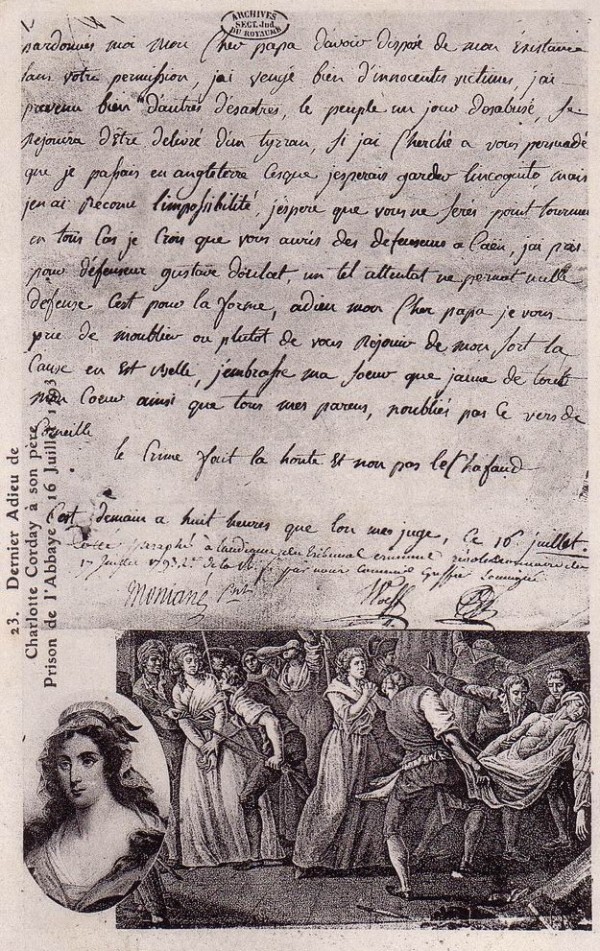 ARCHIVES
SECT. Jud.
DU ROYAUME
pardonnés moi mon Cher papa d'avoir disposé de mon Existance
sans votre permission, j'ai vengé bien d'innocentes victimes, j'ai
prevenu bien d'autres désastres, le peuple un jour désabusé, se
Rejouira d'Etre delivré d'un tyrran, Si j'ai Cherché a vous persuadé
que je passais en angleterre Cesque jesperais garder lincognito, mais
jen ai Reconu limpossibilité, jéspere que vous ne serés point tourmen
en tous Cas je Crois que vous auriés des defenseurs a Caen, j'ai pris
pour défenseur gustave doulcet, un tel attentat ne permet nulle
défense Cest pour la forme, adieu mon Cher papa je vous
prie de moublier ou plutot de vous Rejouir de mon sort la
Cause en Est belle, j'embrasse ma soeur que jaime de tout
mon Coeur ainsi que tous mes parens, noubliés pas Ce vers de
Corneille
le Crime fait la honte Et non pas lEchafaud
Cest demain a huit heures que lon me juge, Ce 16 juillet.
paraphé à l'audience du tribunal criminel révolutionnaire
17 juillet 1793 2e de la
Montané Pnt
Wolff
23. Dernier Adieu de
Charlotte Corday à son père
Prison de l'Abbaye 16 Juillet 1793